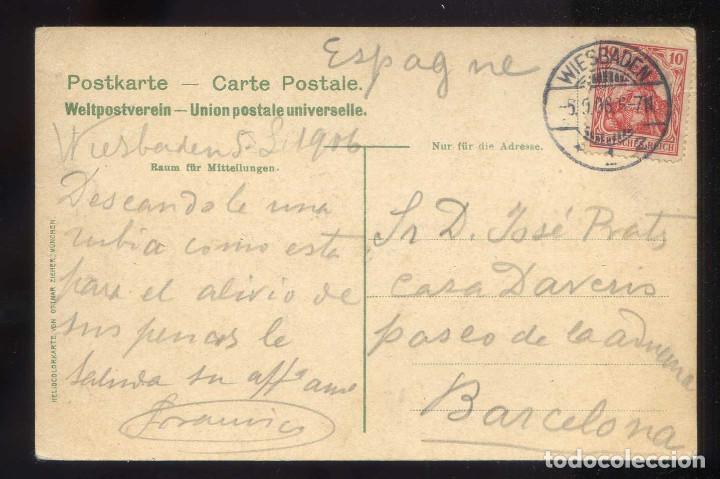 Espagne
Postkarte — Carte Postale.
Weltpostverein — Union postale universelle.
10 10
WIESBADEN
Wiesbaden 5. 9. 1906
Raum für Mitteilungen.
Nur für die Adresse.
Deseandole una
rubia como esta
para el alivio de
sus penas le
saluda su aff.º
Sr D. José Prats
casa Daveris
paseo de la aduana
Barcelona
HELIOCOLORKARTE VON OTTMAR ZIEHER, MÜNCHEN
todocoleccion
todocoleccion.net